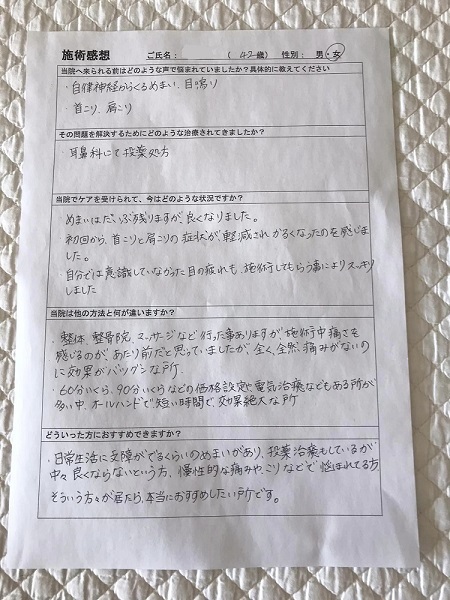 施術感想 ご氏名: ( 42 歳) 性別: 男・女
当院へ来られる前はどのような声で悩まれていましたか?具体的に教えてください
・自律神経からくるめまい、耳鳴り
・首こり、肩こり
その問題を解決するためにどのような治療されてきましたか?
・耳鼻科にて投薬処方
当院でケアを受けられて、今はどのような状況ですか?
めまいはだいぶ残りますが、良くなりました。
初回から、首こりと肩こりの症状が、軽減されかるくなったのを感じま
した。
自分では意識していなかった目の疲れも、施術してもらう事によりスッキリ
しました
当院は他の方法と何が違いますか?
・整体、整骨院、マッサージなど行った事ありますが、施術中痛さを
感じるのが、あたり前だと思っていましたが、全く、全然痛みがないの
に効果がバツグンな所。
・60分いくら、90分いくらなどの価格設定や電気治療などもある所が
多い中、オールハンドで短い時間で、効果絶大な所
どういった方におすすめできますか?
・日常生活に支障がでるくらいのめまいがあり、投薬治療もしているが
中々良くならないという方、慢性的な痛みや、こりなどで悩まれてる方
そういう方々が居たら、本当におすすめしたい所です。